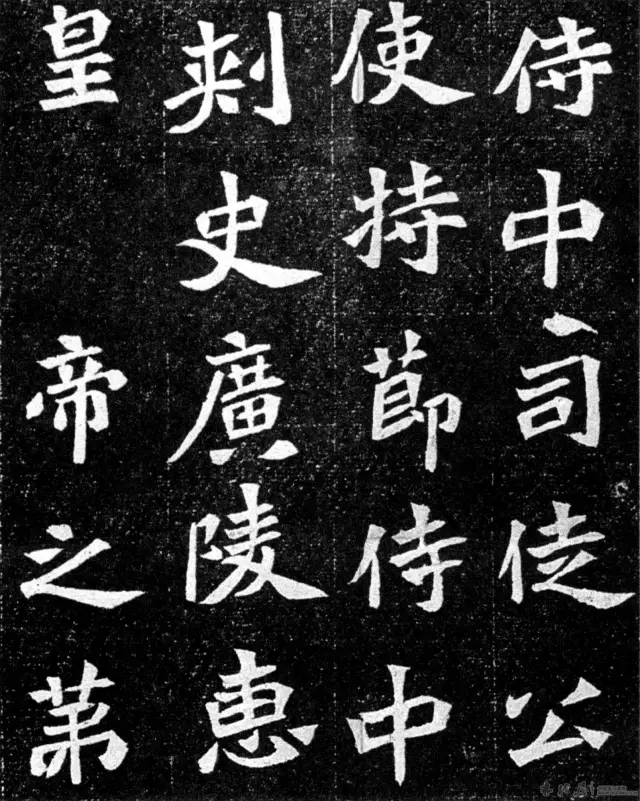 侍中司徒公
使持莭侍中
刾史廣陵惠
皇帝之苐